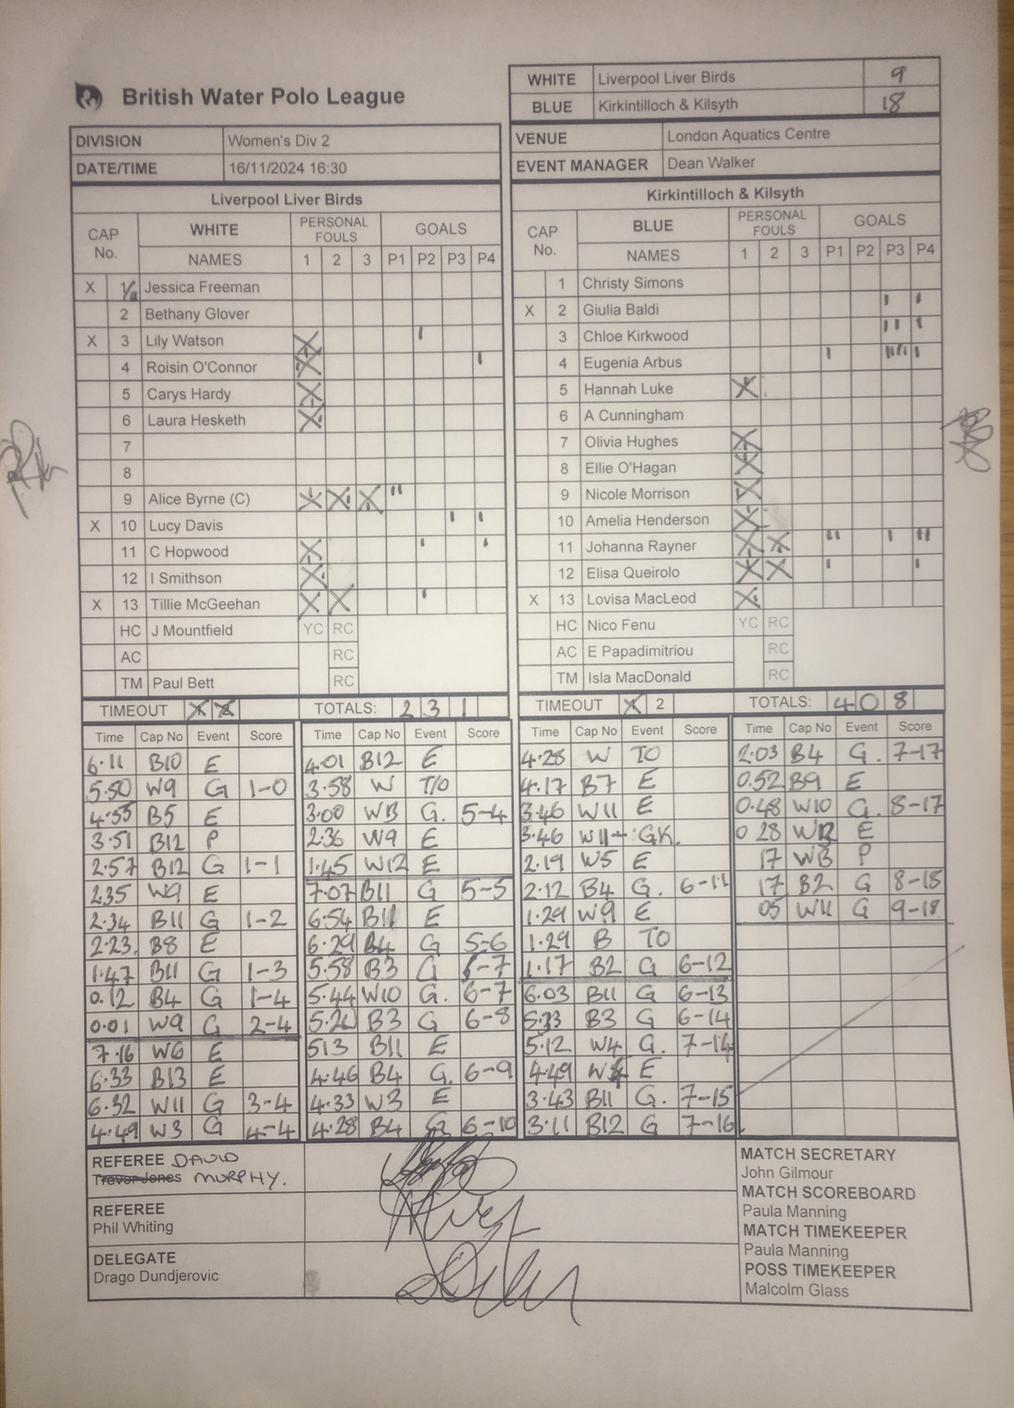 British Water Polo League
WHITE Liverpool Liver Birds 9
BLUE Kirkintilloch & Kilsyth 18
DIVISION Women's Div 2
DATE/TIME 16/11/2024 16:30
VENUE London Aquatics Centre
EVENT MANAGER Dean Walker
Liverpool Liver Birds
CAP No. WHITE PERSONAL FOULS GOALS
NAMES 1 2 3 P1 P2 P3 P4
X 1 Jessica Freeman
2 Bethany Glover
X 3 Lily Watson X
4 Roisin O'Connor X
5 Carys Hardy X
6 Laura Hesketh X
7
8
9 Alice Byrne (C) X X X
X 10 Lucy Davis
11 C Hopwood X
12 I Smithson X
X 13 Tillie McGeehan X X
HC J Mountfield YC RC
AC RC
TM Paul Bett RC
TIMEOUT X X TOTALS: 2 3 1
Kirkintilloch & Kilsyth
CAP No. BLUE PERSONAL FOULS GOALS
NAMES 1 2 3 P1 P2 P3 P4
1 Christy Simons
X 2 Giulia Baldi
3 Chloe Kirkwood
4 Eugenia Arbus
5 Hannah Luke X
6 A Cunningham
7 Olivia Hughes X
8 Ellie O'Hagan X
9 Nicole Morrison X
10 Amelia Henderson X
11 Johanna Rayner X X
12 Elisa Queirolo X X
X 13 Lovisa MacLeod X
HC Nico Fenu YC RC
AC E Papadimitriou RC
TM Isla MacDonald RC
TIMEOUT X 2 TOTALS: 4 0 8
Time Cap No Event Score
6.11 B10 E
5.50 W9 G 1-0
4.55 B5 E
3.51 B12 P
2.57 B12 G 1-1
2.35 W9 E
2.34 B11 G 1-2
2.23 B8 E
1.47 B11 G 1-3
0.12 B4 G 1-4
0.01 W9 G 2-4
7.16 W6 E
6.33 B13 E
6.32 W11 G 3-4
4.49 W3 G 4-4
Time Cap No Event Score
4.01 B12 E
3.58 W T/O
3.00 W13 G. 5-4
2.36 W9 E
1.45 W12 E
7.07 B11 G 5-5
6.54 B11 E
6.29 B4 G 5-6
5.58 B3 G 5-7
5.44 W10 G. 6-7
5.20 B3 G 6-8
513 B11 E
4.46 B4 G. 6-9
4.33 W3 E
4.28 B4 G 6-10
Time Cap No Event Score
4.28 W TO
4.17 B7 E
3.46 W11 E
3.46 W11- GK.
2.19 W5 E
2.12 B4 G. 6-11
1.29 W9 E
1.29 B TO
1.17 B2 G 6-12
6.03 B11 G 6-13
5.33 B3 G 6-14
5.12 W4 G. 7-14
4.49 E
3.43 B11 G. 7-15
3.11 B12 G 7-16
Time Cap No Event Score
2.03 B4 G. 7-17
0.52 B9 E
0.48 W10 G. 8-17
0 28 W12 E
17 W13 P
17 B2 G 8-18
05 W11 G 9-18
REFEREE DAVID
Trevor Jones MURPHY.
REFEREE
Phil Whiting
DELEGATE
Drago Dundjerovic
MATCH SECRETARY
John Gilmour
MATCH SCOREBOARD
Paula Manning
MATCH TIMEKEEPER
Paula Manning
POSS TIMEKEEPER
Malcolm Glass